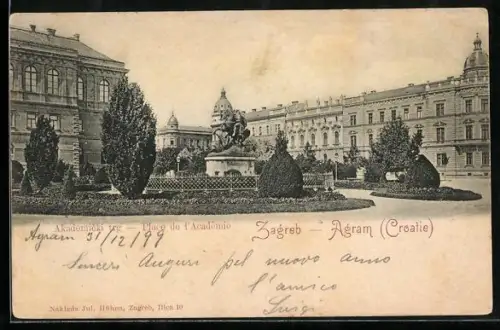 Akademički trg — Place de l'Académie
Zagreb — Agram (Croatie)
Agram 31/12/99
Sinceri Auguri pel nuovo anno
l'amico
Luigi
Naklada Jul. Hühn, Zagreb, Ilica 10